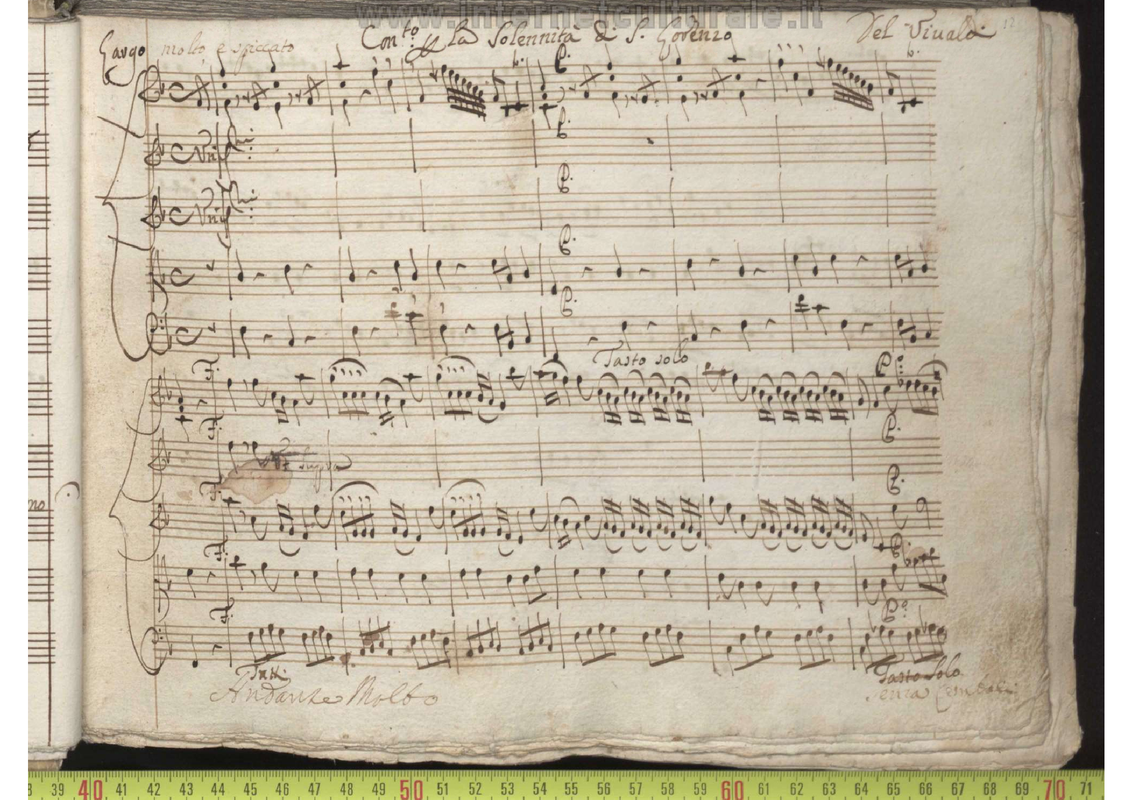 www.internetculturale.it
Largo molto e spiccato Con.to La Solennità di S. Lorenzo Del Vivaldi 12
P.
P.
P.
P.
P.
Tasto solo
F. P.
F. P.
ut supra
F. P.
F. P.
F. P.
Tutti Tasto Solo
Andante Molto Senza Cembali
no
38 39 40 41 42 43 44 45 46 47 48 49 50 51 52 53 54 55 56 57 58 59 60 61 62 63 64 65 66 67 68 69 70 71